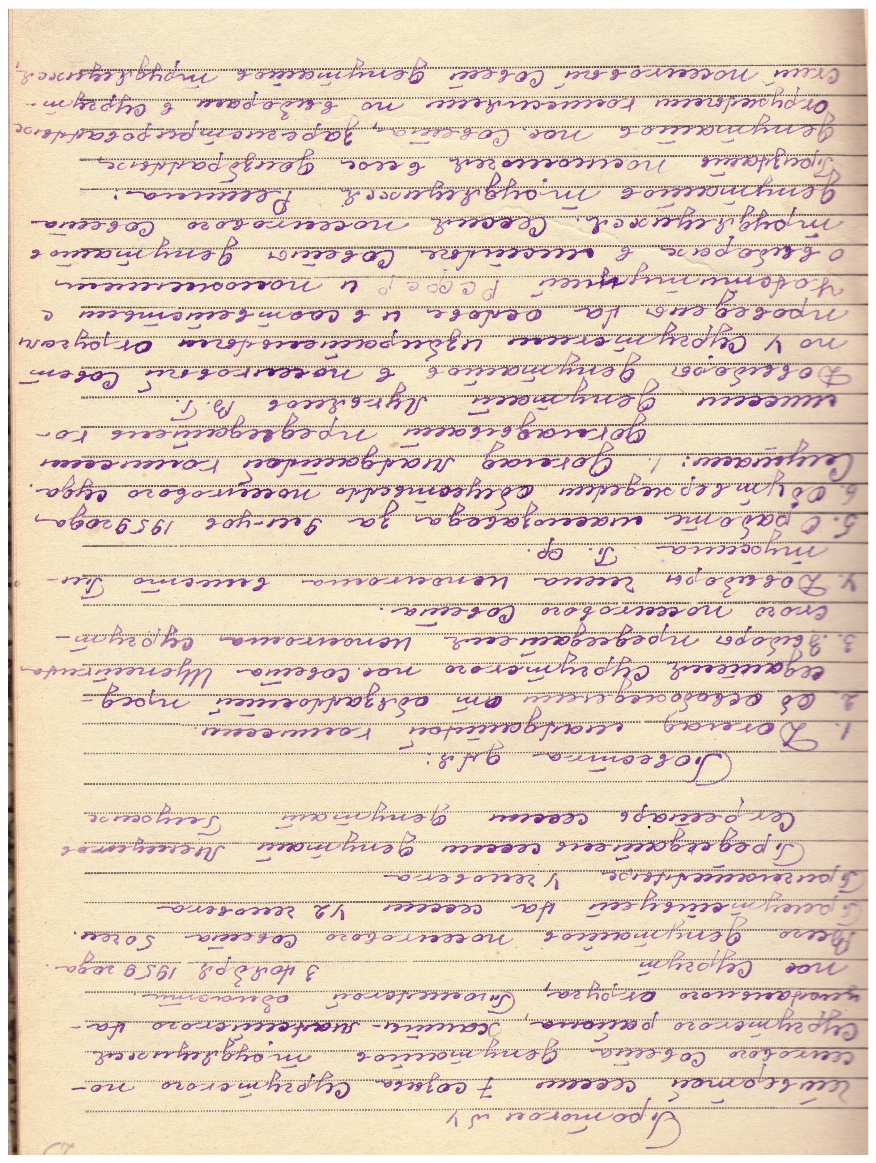 Протокол № 4
четвертой сессии 7 созыва Сургутского по-
селкового Совета депутатов трудящихся
Сургутского района, Ханты-Мансийского на-
ционального округа, Тюменской области.
пос Сургут 3 ноября 1959 года
Всего депутатов поселкового Совета 50 чел.
Присутствует на сессии 42 человека
Приглашенных 4 человека
Председатель сессии депутат
Секретарь сессии депутат
Повестка дня:
1. Доклад мандатной комиссии.
2. Об освобождении от обязанностей пред-
седателя Сургутского пос. Совета
3. Выборы председателя исполкома Сургут-
ского поселкового Совета.
4. Довыборы члена исполкома вместо Пи-
5. О работе маслозавода за 9 м-цев 1959 года.
6. Об утверждении общественного поселкового суда.
Слушали: 1. Доклад мандатной комиссии
Докладывает председатель ко-
миссии депутат Лукьянов В. Г.
Довыборы депутатов в поселковый Совет
по Сургутским избирательным округам
проведены на основе и в соответствии с
Конституцией РСФСР и положением
о выборах в местные Советы депутатов
трудящихся. Сессия поселкового Совета
депутатов трудящихся Решила:
Признать полномочия всех доизбранных
депутатов пос Совета, зарегистрированных
окружными комиссиями по выборам в Сургут-
ский поселковый Совет депутатов трудящихся,